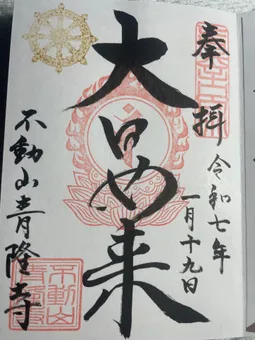 奉拝
令和七年
一月十九日
大日如来
不動山青隆寺